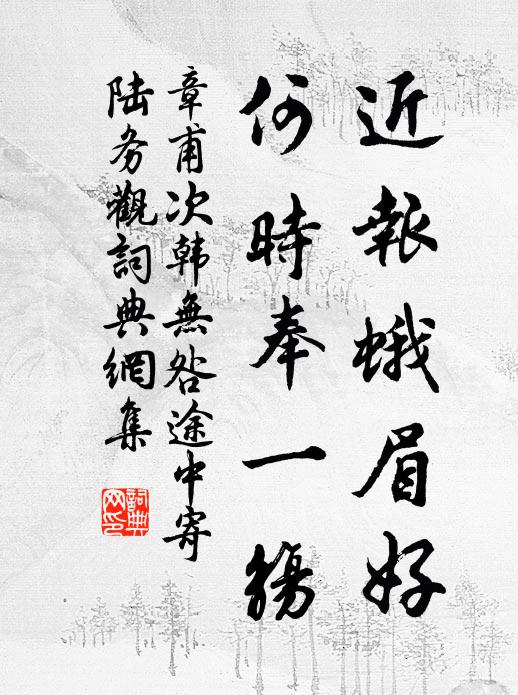 近報蛾眉好
何時奉一觴
章甫次韩無咎途中寄
陆务觀詞典網集
詞典
网印